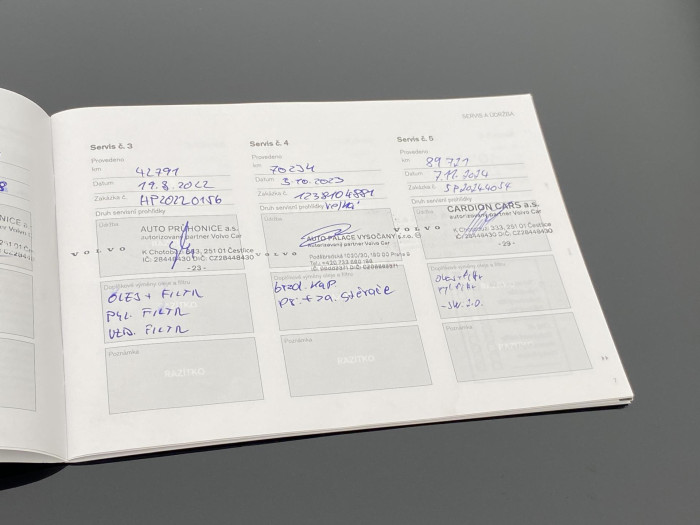 SERVIS A ÚDRŽBA
Servis č. 3
Provedeno
km 42791
Datum 19.8.2022
Zakázka č. HP20220156
Druh servisní prohlídky
Údržba
AUTO PRŮHONICE a.s.
autorizovaný partner Volvo Car
VOLVO
K Chotobuzi 333, 251 01 Čestlice
IČ: 26448430 DIČ: CZ26448430
- 23 -
Doplňkové výměny oleje a filtru
OLEJ + FILTR
PYL. FILTR
VZD. FILTR
Poznámka
RAZÍTKO
Servis č. 4
Provedeno
km 70234
Datum 3.10.2023
Zakázka č. 1238104881
Druh servisní prohlídky velká
Údržba
AUTO PALACE VYSOČANY s.r.o.
autorizovaný partner Volvo Car
VOLVO
Poděbradská 1020/30, 190 00 Praha 9
Doplňkové výměny oleje a filtru
brzd. kap.
př. + za. stěrače
Poznámka
RAZÍTKO
Servis č. 5
Provedeno
km 89721
Datum 7.11.2024
Zakázka č.
Druh servisní prohlídky
Údržba
CARDION CARS a.s.
autorizovaný partner Volvo Car
VOLVO
K Chotobuzi 333, 251 01 Čestlice
IČ: 26448430 DIČ: CZ26448430
- 29 -
Doplňkové výměny oleje a filtru
Poznámka